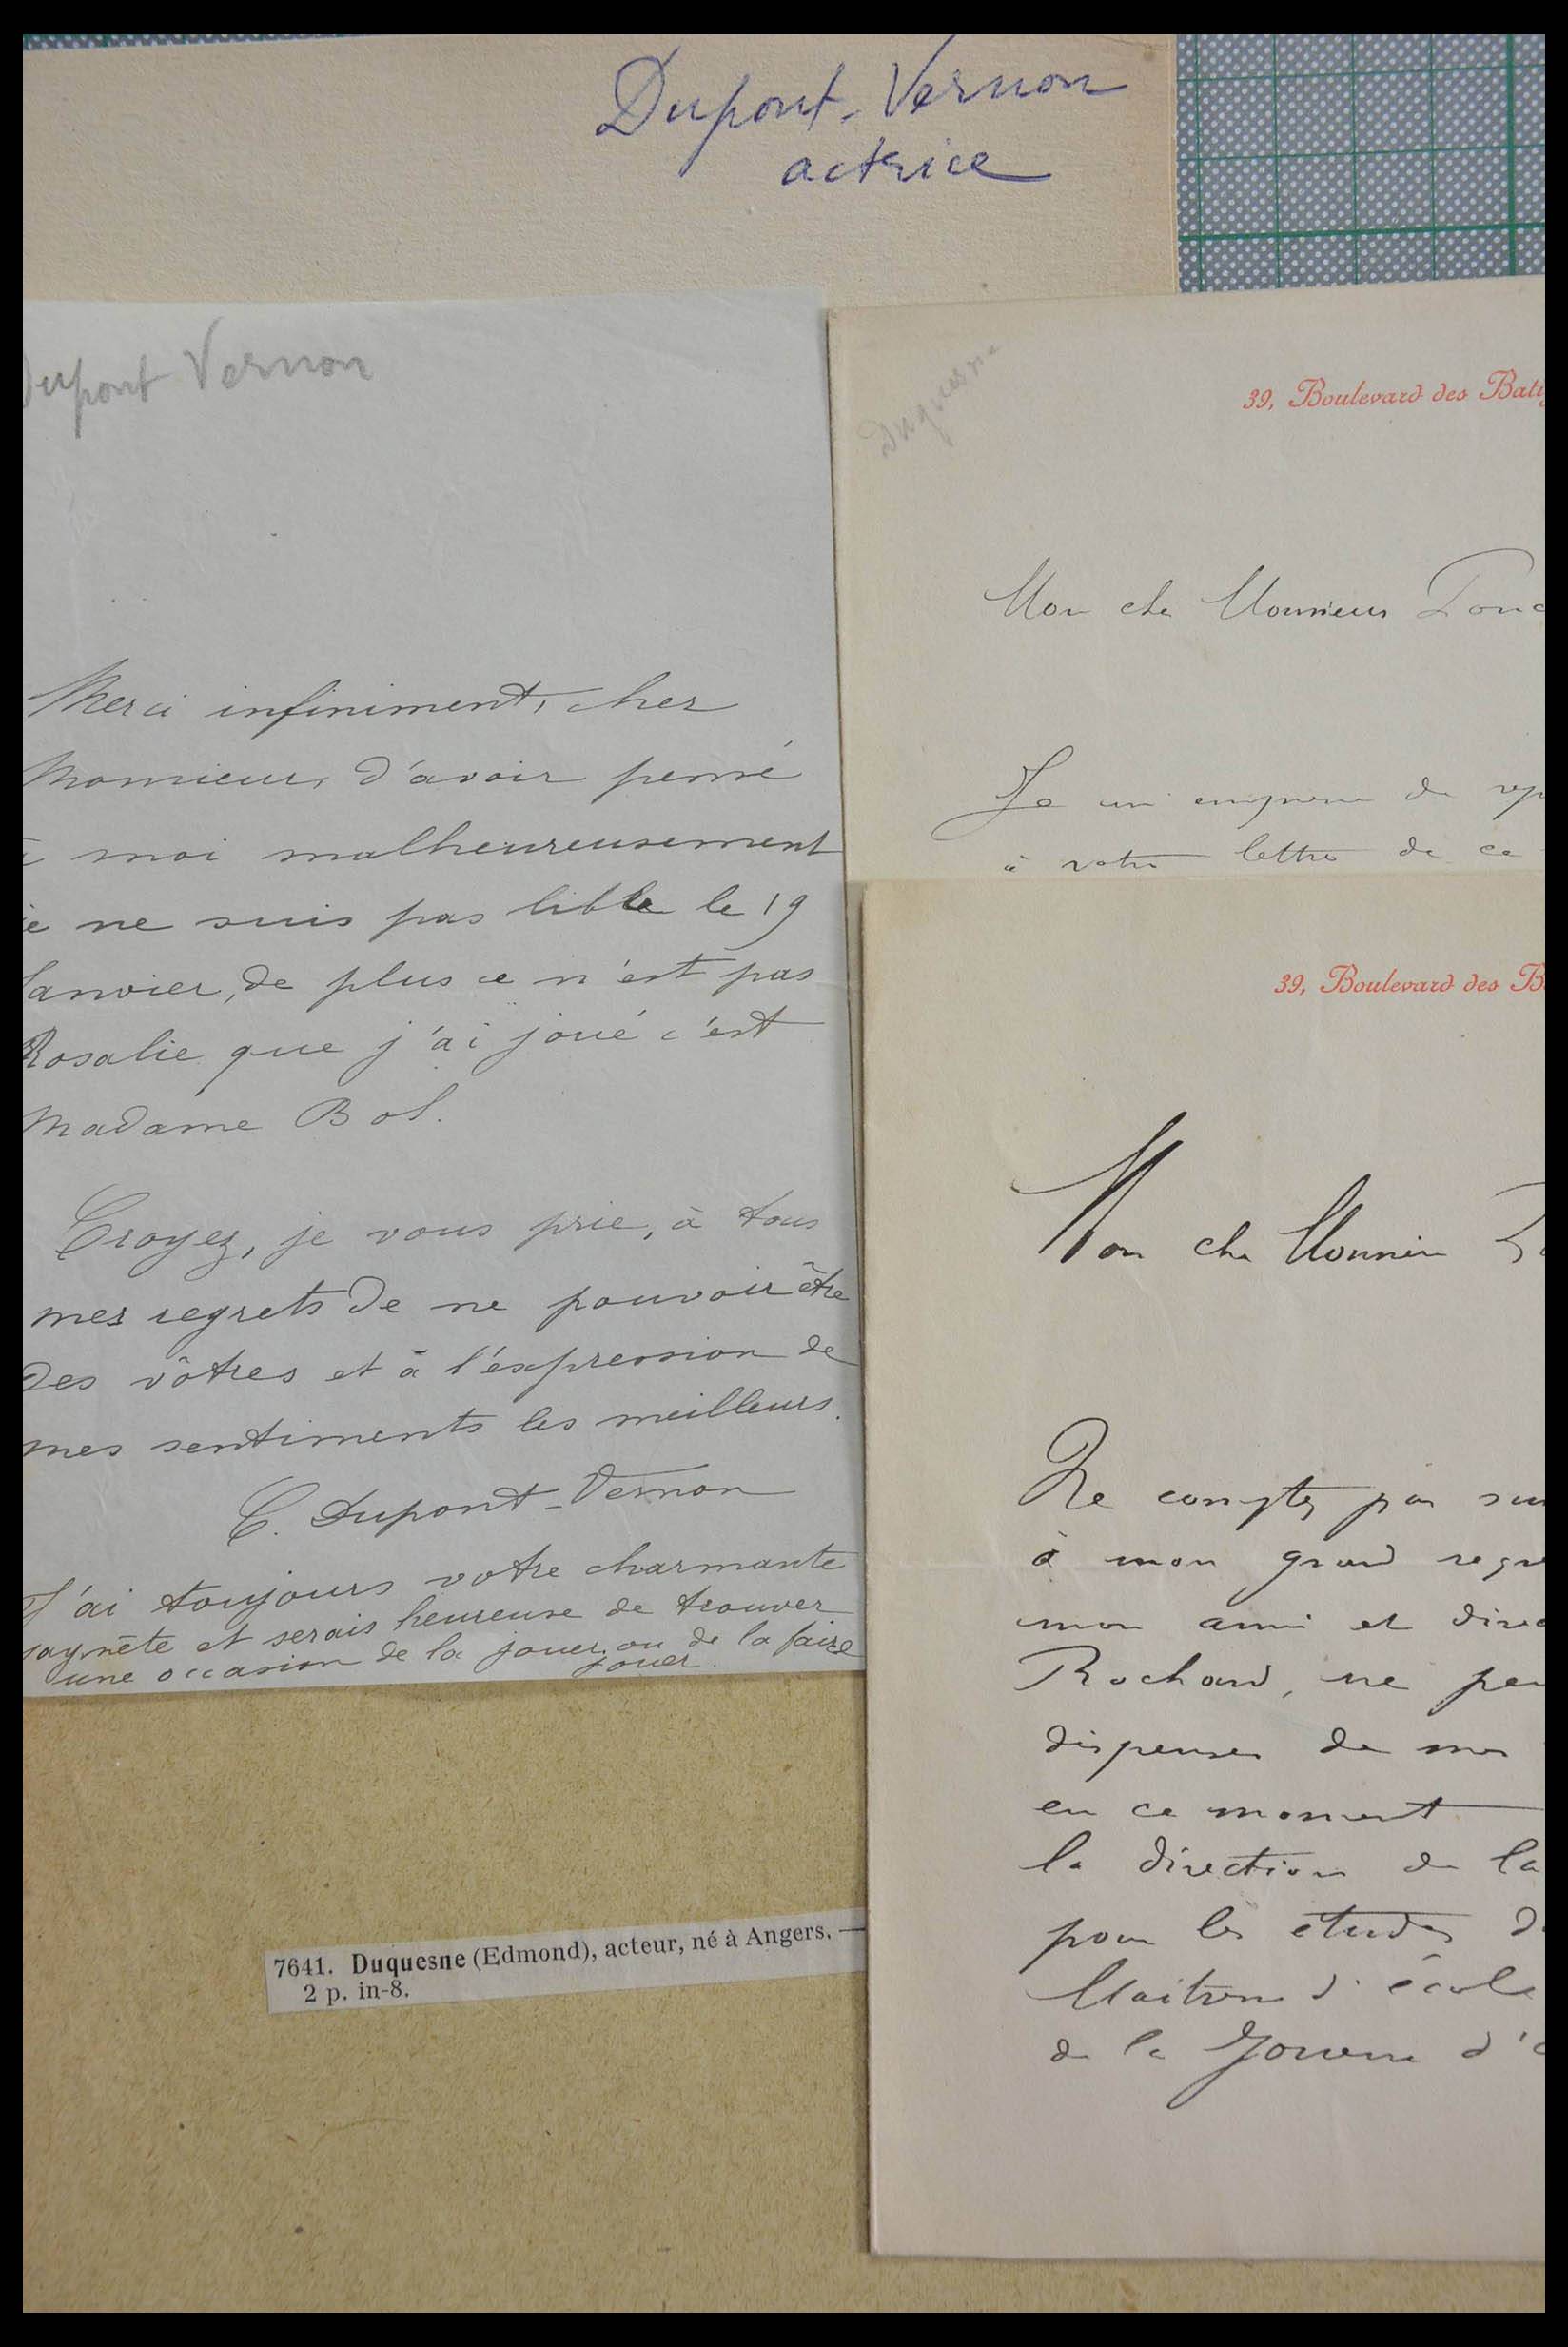 Dupont-Vernon
actrice
Dupont Vernon
Merci infiniment, cher
Monsieur, d'avoir pensé
à moi malheureusement
je ne suis pas libre le 19
Janvier, de plus ce n'est pas
Rosalie que j'ai joué c'est
Madame Bol.
Croyez, je vous prie, à tous
mes regrets de ne pouvoir être
des vôtres et à l'expression de
mes sentiments les meilleurs.
C. Dupont-Vernon
J'ai toujours votre charmante
saynète et serais heureuse de trouver
une occasion de la jouer ou de la faire
jouer.
Duquesne
39, Boulevard des Bati
Mon che Monsieur
Je de
à votre lettre de ce
39, Boulevard des B
Mon che Monsieur
Ne comptez pas sur
à mon grand regre
mon ami et direc
Rochard, ne peu
dispenser de mes
en ce moment
la direction de la
pour les études d
Maitresse d'école
de la d'
7641. Duquesne (Edmond), acteur, né à Angers. —
2 p. in-8.